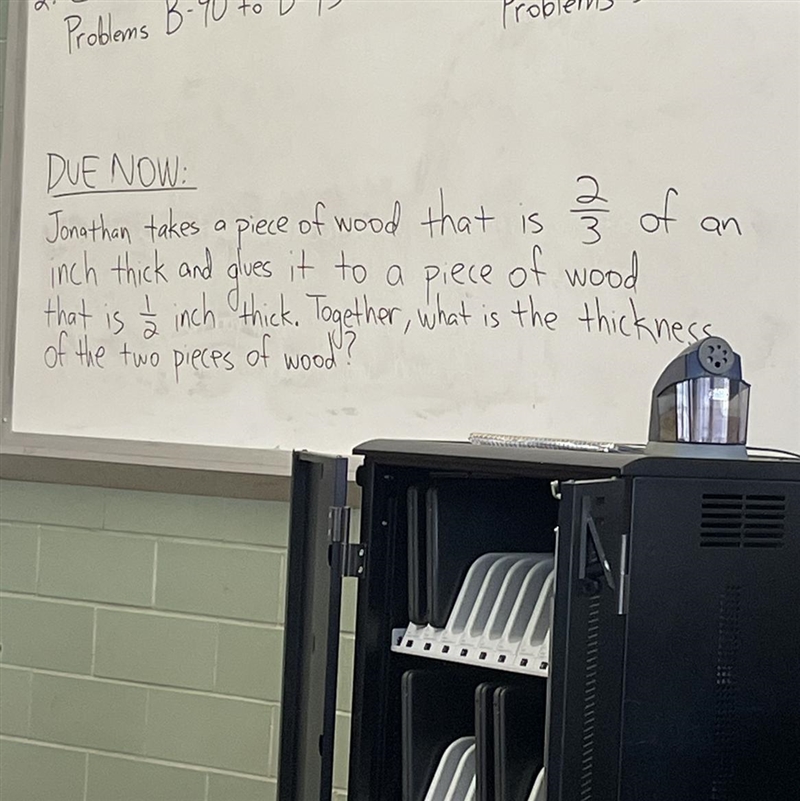 Problems B-90 to
Problems
DUE NOW:
Jonathan takes a piece of wood that is 2/3 of an
inch thick and glues it to a piece of wood
that is 1/2 inch thick. Together, what is the thickness
of the two pieces of wood?